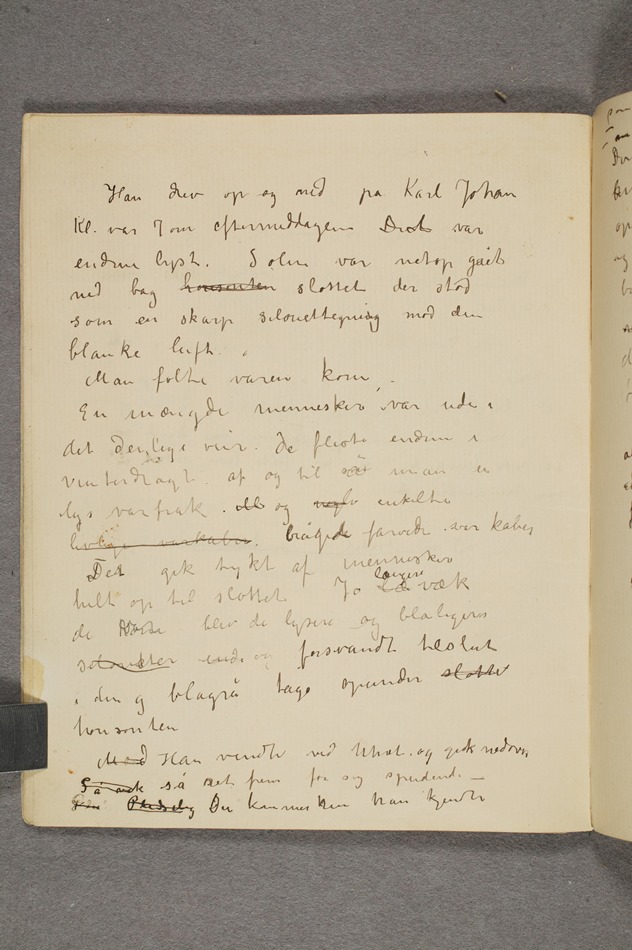 Han drev op og ned på Karl Johan
Kl. var 7 om eftermiddagen Det var
endnu lyst. Solen var netop gået
ned bag horisonten slottet der stod
som en skarp silouettegning mod den
blanke luft.
Man følte våren kom.
En mængde mennesker var ude i
det deilige veir. De fleste endnu i
vinterdragt. af og til så man en
lys vårfrak. og enkelte
farvede vårkåber
Det gik tykt af mennesker
helt op til slottet Jo længere væk
de blev de lysere og blåligere
og forsvandt tilslut
i den blågrå tåge opunder slottet
horisonten
Med Han vendte ved og gik nedover
så ret frem for sig spændende —
Pludselig Der kommer hun han kjendte